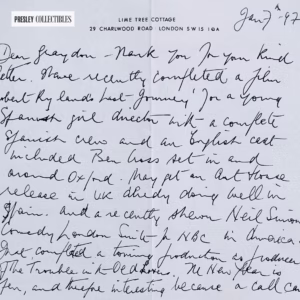 PRESLEY COLLECTIBLES
LIME TREE COTTAGE
29 CHARLWOOD ROAD LONDON SW15 1QA
Jan 7th '97
Dear Graydon - Thank you for your kind
letter. I have recently completed a film
'Robert Rylands Last Journey' for a young
Spanish girl director with a complete
Spanish crew and an English cast
included Ben Cross set in and
around Oxford. May get an Art House
release in UK already doing well in
Spain. and a recently shewn Neil Simon
Comedy London Suite for NBC in America.
Just completed a touring production as producer
'The Trouble with Old Lovers'. The New Year is
open, and therefore interesting because a call can